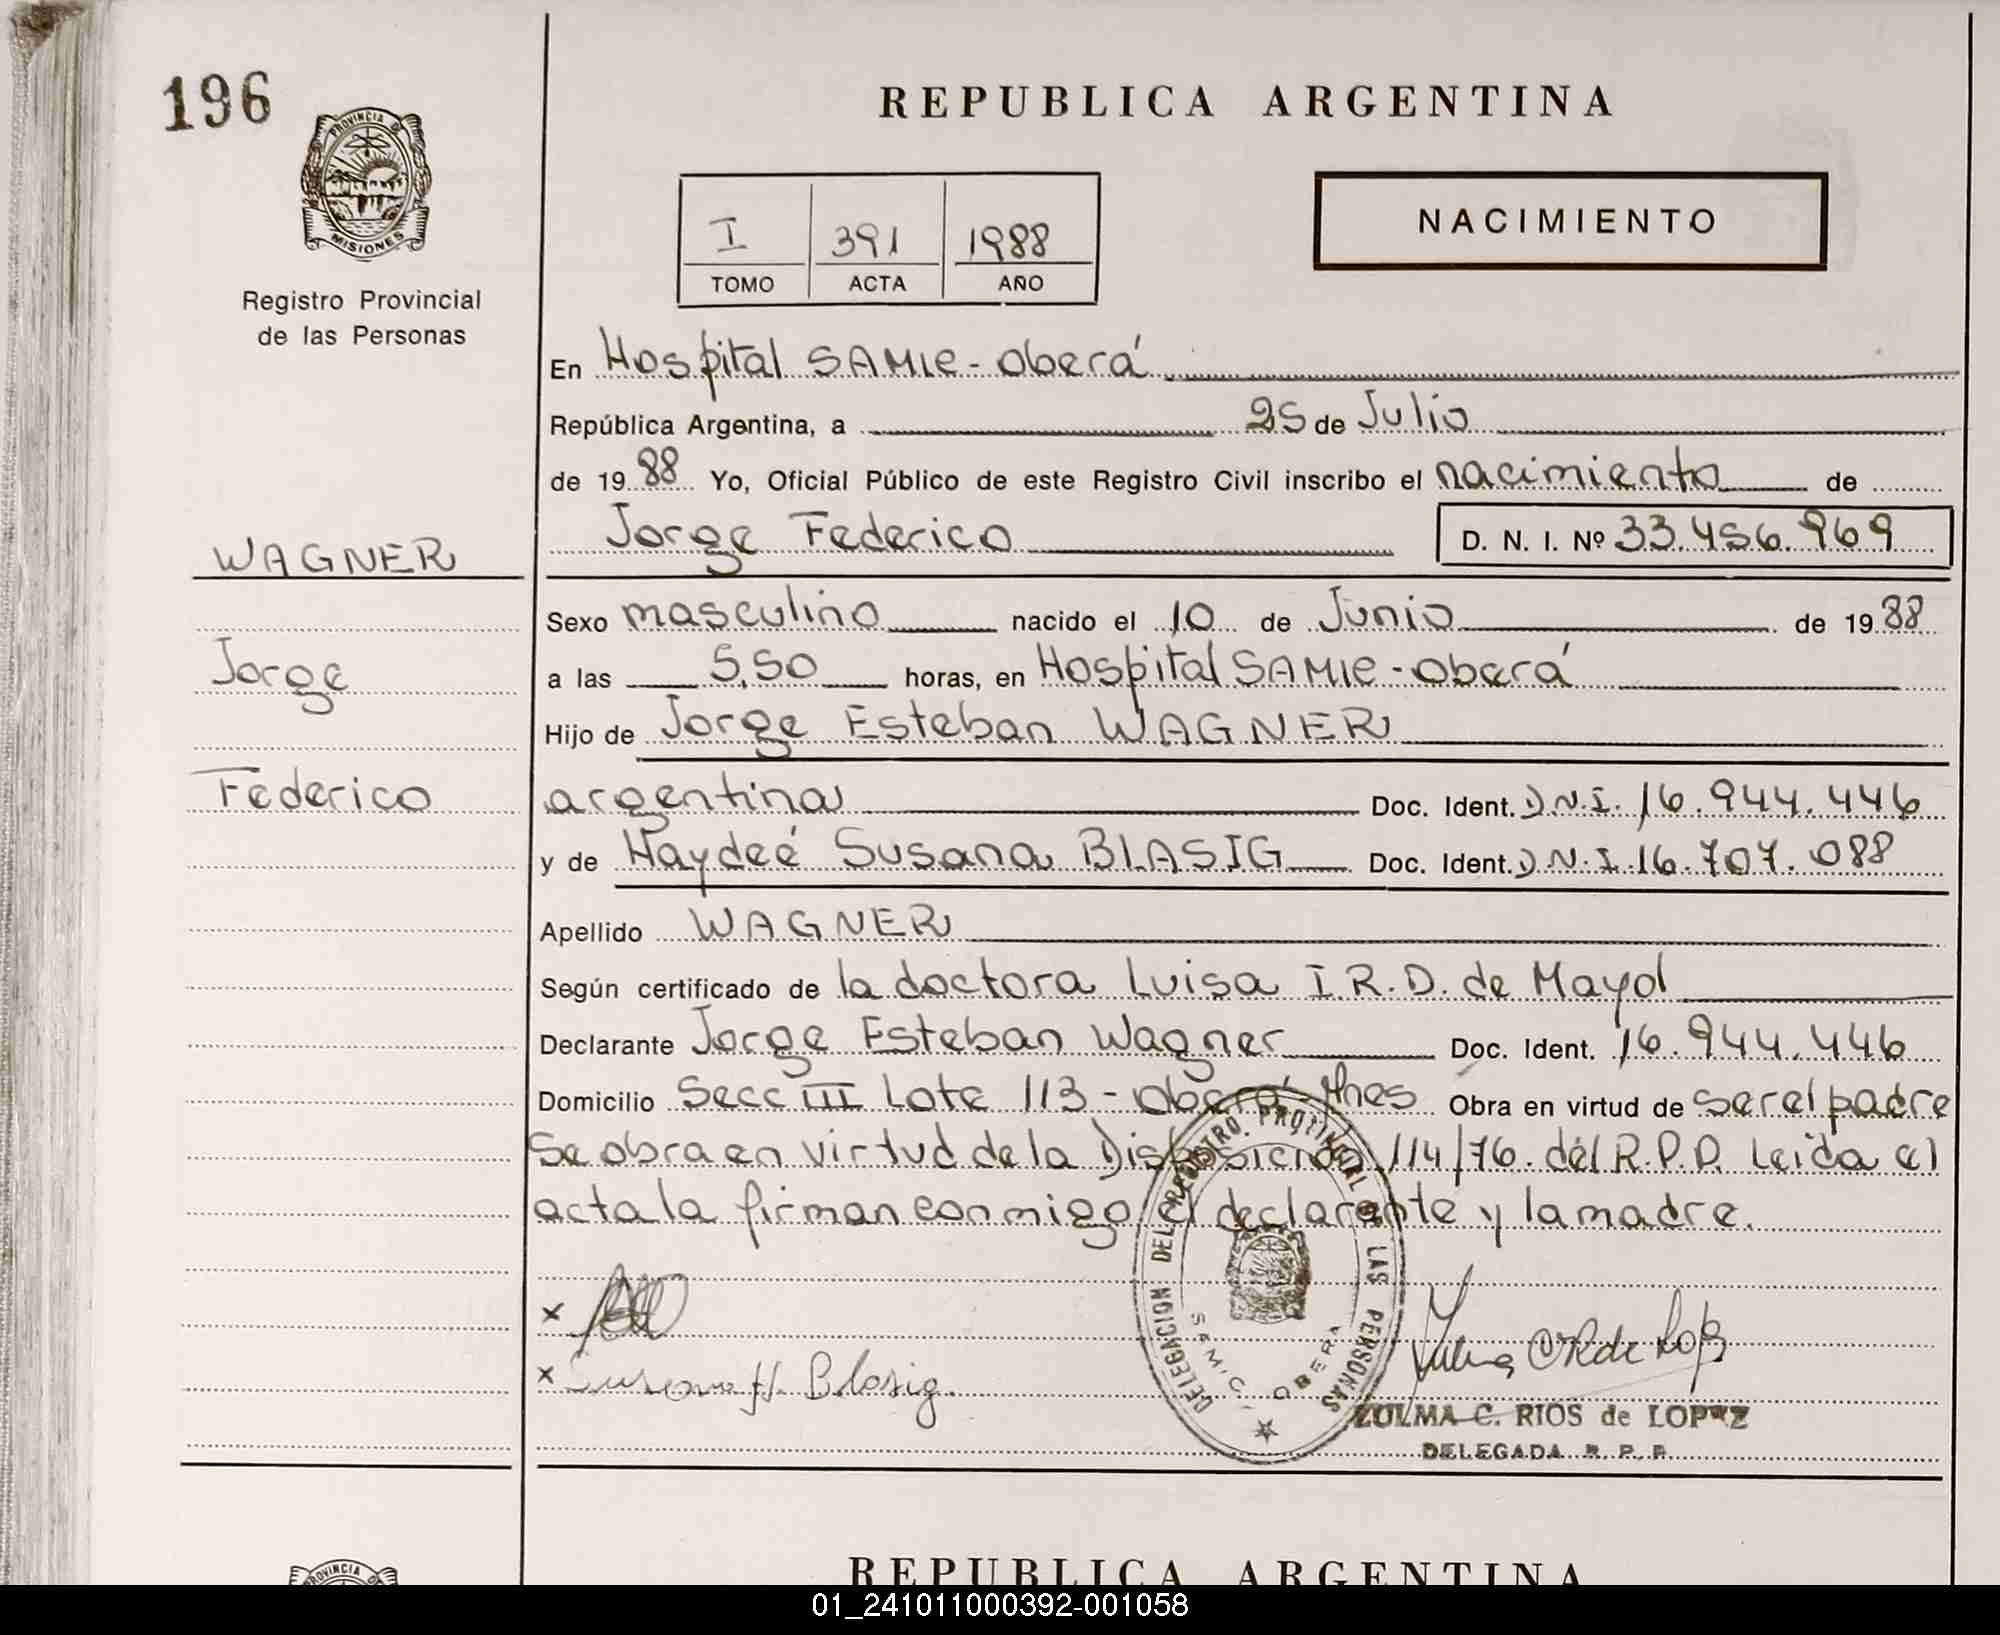 196
PROVINCIA DE
MISIONES
Registro Provincial
de las Personas
REPUBLICA ARGENTINA
I 391 1988
TOMO ACTA AÑO
NACIMIENTO
En Hospital SAMIC - Oberá
República Argentina, a 25 de Julio
de 19 88 Yo, Oficial Público de este Registro Civil inscribo el nacimiento de
Jorge Federico D. N. I. Nº 33.456.969
WAGNER
Sexo masculino nacido el 10 de Junio de 19 88
Jorge
a las 5,50 horas, en Hospital SAMIC - Oberá
Hijo de Jorge Esteban WAGNER
Federico
argentina Doc. Ident. D.N.I. 16.944.446
y de Haydeé Susana BLASIG Doc. Ident. D.N.I. 16.707.088
Apellido WAGNER
Según certificado de la doctora Luisa I.R.D. de Mayol
Declarante Jorge Esteban Wagner Doc. Ident. 16.944.446
Domicilio Secc III Lote 113 - Oberá Mnes Obra en virtud de ser el padre
Se obra en virtud de la Disposición 114/76 del R.P.P. Leida el
acta la firman conmigo el declarante y la madre.
DELEGACION DEL REGISTRO PROVINCIAL DE LAS PERSONAS
SAMIC - OBERA
x
x Susana H. Blasig
ZULMA C. RIOS de LOPEZ
DELEGADA R. P. P.
PROVINCIA DE
REPUBLICA ARGENTINA
01_241011000392-001058